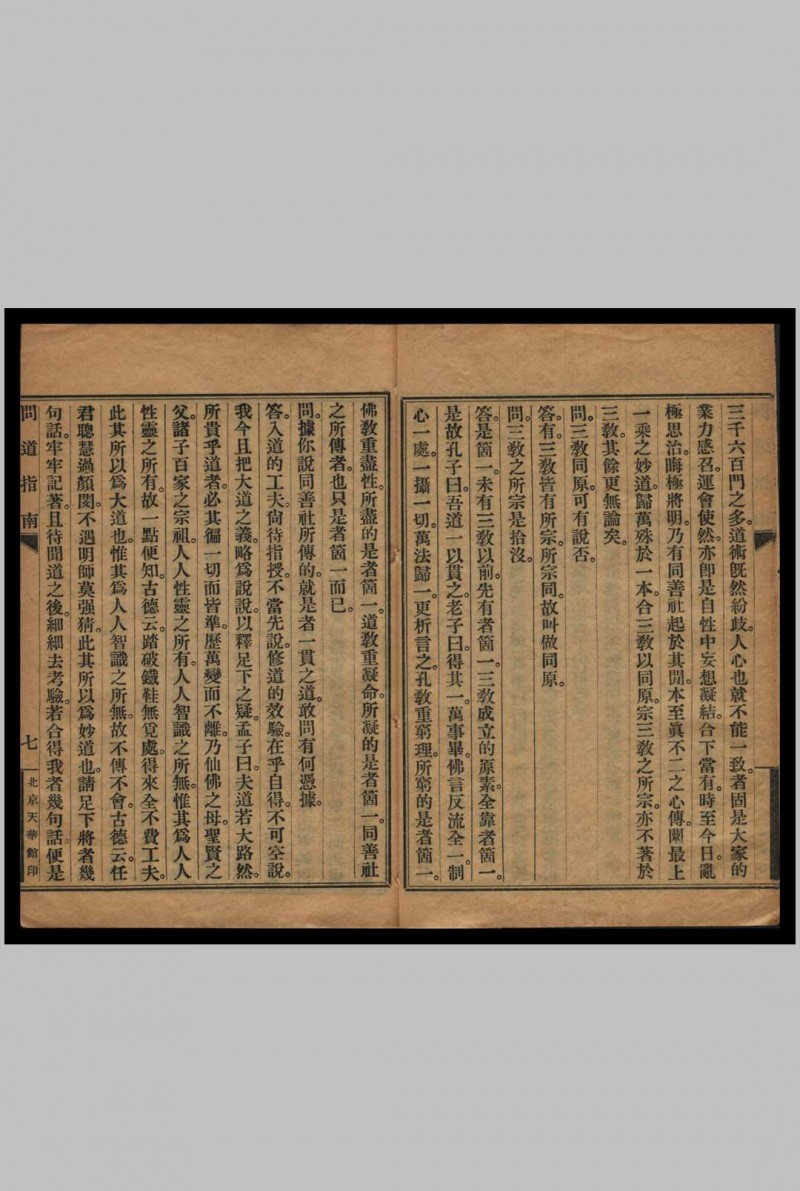 三千六百門之多。道術既然紛歧。人心也就不能一致。者固是大家的
業力感召。運會使然。亦卽是自性中妄想凝結。合下當有。時至今日。亂
極思治。晦極將明。乃有同善社起於其間。本至眞不二之心傳。闡最上
一乘之妙道。歸萬殊於一本。合三敎以同原。宗三敎之所宗。亦不著於
三敎。其餘更無論矣。
問。三敎同原。可有說否。
答。有。三敎皆有所宗。所宗同。故叫做同原。
問。三敎之所宗是拾沒。
答。是箇一。未有三敎以前。先有者箇一。三敎成立的原素。全靠者箇一。
是故孔子曰。吾道一以貫之。老子曰。得其一。萬事畢。佛言反流全一。制
心一處。一攝一切。萬法歸一。更析言之。孔敎重窮理。所窮的是者箇一。
佛敎重盡性。所盡的是者箇一。道敎重凝命。所凝的是者箇一。同善社
之所傳者。也只是者箇一而已。
問。據你說同善社所傳的。就是者一貫之道。敢問有何憑據。
答。入道的工夫。尙待指授。不當先說。修道的效驗。在乎自得。不可空說。
我今且把大道之義。略爲說說。以釋足下之疑。孟子曰。夫道若大路然。
所貴乎道者。必其徧一切而皆準。歷萬變而不離。乃仙佛之母。聖賢之
父。諸子百家之宗祖。人人性靈之所有。人人智識之所無。惟其爲人人
性靈之所有。故一點便知。古德云。踏破鐵鞋無覓處。得來全不費工夫。
此其所以爲大道也。惟其爲人人智識之所無。故不傳不會。古德云。任
君聰慧過顏閔。不遇明師莫强猜。此其所以爲妙道也。請足下將者幾
句話。牢牢記著。且待聞道之後。細細去考驗。若合得我者幾句話。便是
問道指南
七
北京天華館印